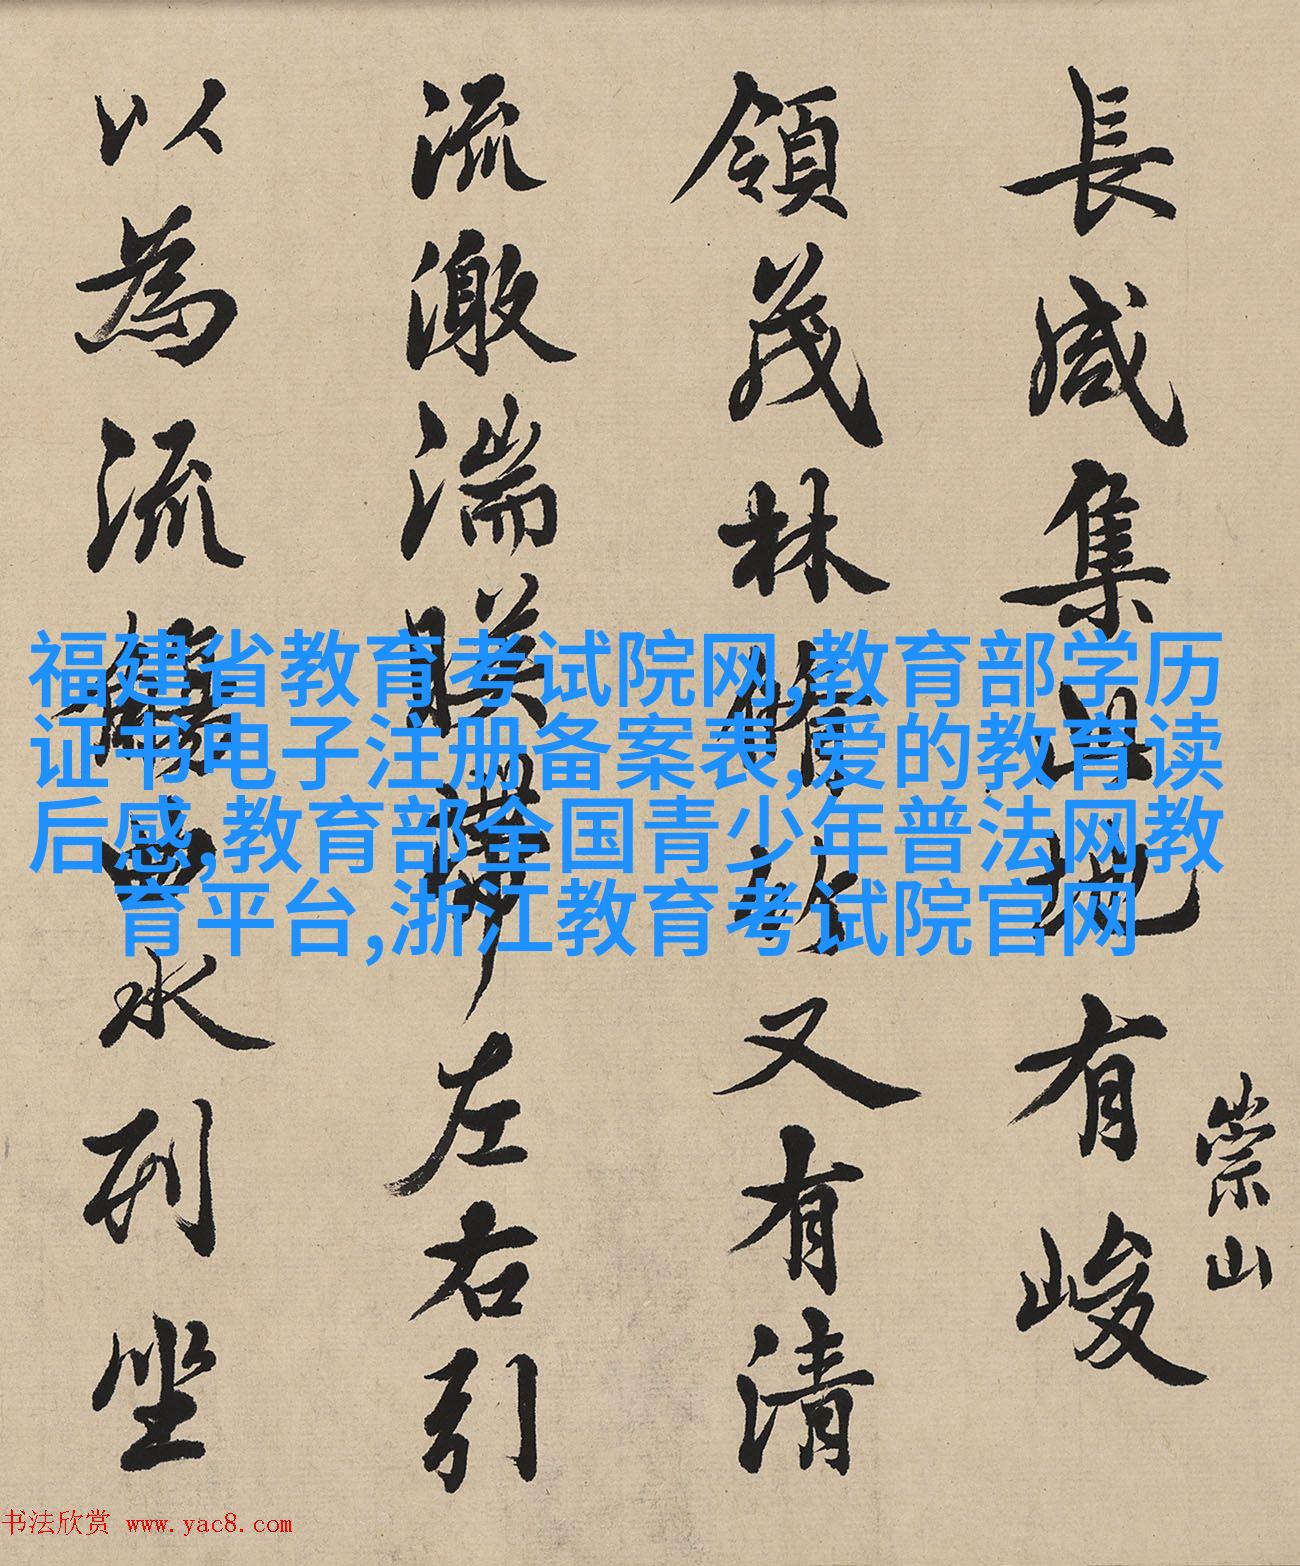 長咸集此地有峻
崇山
領茂林脩竹又有清
流激湍暎帶左右引
以為流觴曲水列坐
福建省教育考试院网,教育部学历
证书电子注册备案表,爱的教育读
后感,教育部全国青少年普法网教
育平台,浙江教育考试院官网
书法欣赏 www.yac8.com